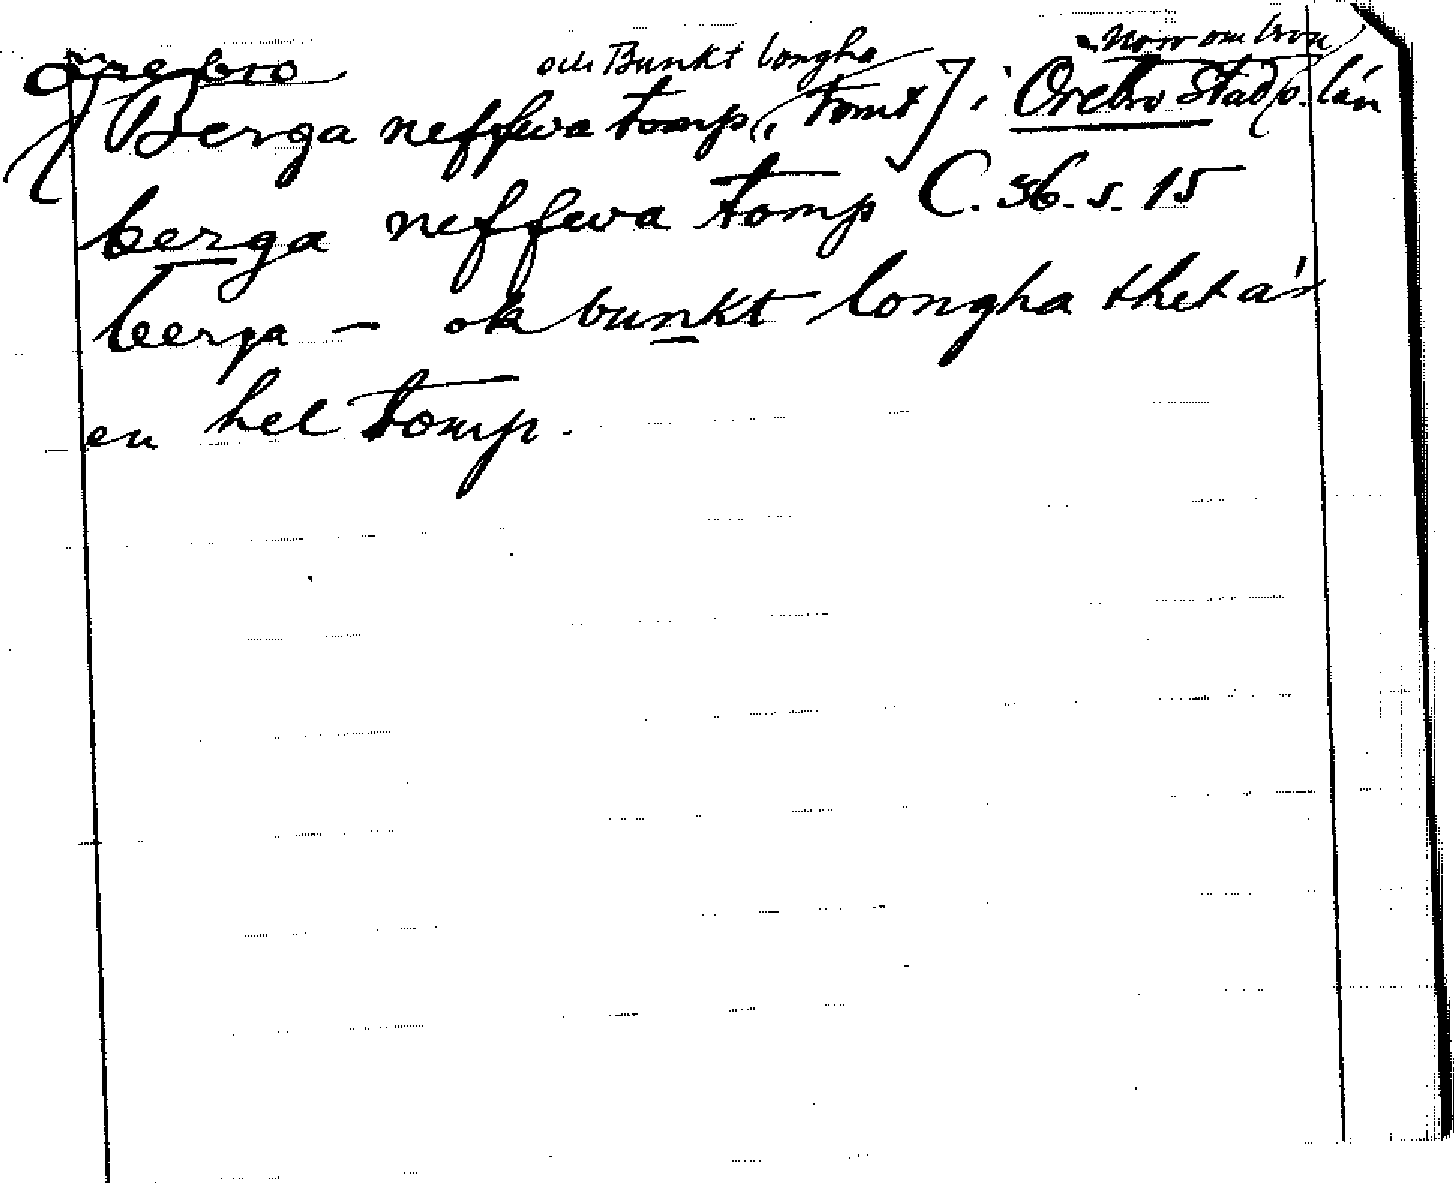 Örebro
och Bunkt longha
norr om bron
[Berga neffwa tomp, (tomt] i Örebro stad o. län
berga neffwa tomp C. 56. s. 15
berga — ok bunkt longha thet är
en hel tomp.